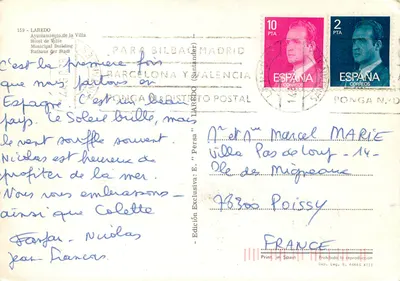 112 - LAREDO
Ayuntamiento de la Villa
Hôtel de Ville
Municipal Building
PARA BILBAO MADRID
BARCELONA Y VALENCIA
POSTAL
PONGA
10
PTA
ESPAÑA
CORREOS
2
PTA
ESPAÑA
CORREOS
C'est la première fois
que nous partons en
Espagne. C'est un beau
pays. Le Soleil brille, mais
le vent souffle souvent.
Nicolas est heureux de
profiter de la mer.
Nous vous embrassons
ainsi que Colette
Nicolas
Jean François
- Edición Exclusiva: E. "Peras" - LAREDO (Santander)
Mr et Mme Marcel MARIE
Villa Pas de Loup - 14 -
Ile des Migneaux
78300 POISSY
FRANCE
Print. in Spain
Prohibida la reproducción